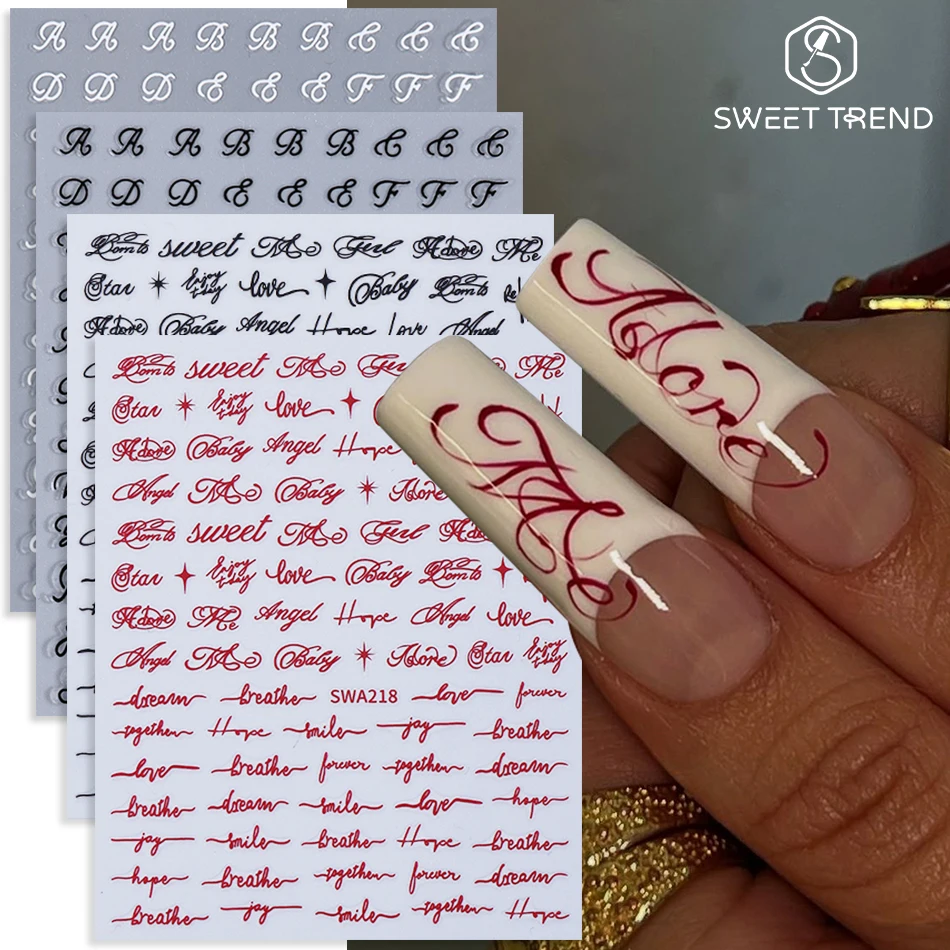 SWEET TREND
A A A B B B C C C
D D D E E E F F F
A A A B B B C C C
D D D E E E F F F
Born to sweet Me Girl Adore Me
Star Enjoy today love Baby Born to
Adore Baby Angel Hope love Angel
Born to sweet Me Me
Star Enjoy today love
Adore Baby Angel Hope
Angel Me Baby Adore
Born to sweet Me Girl
Star Enjoy today love Baby Born to
Adore Me Angel Hope Angel love
Angel Me Baby Adore Star Enjoy today
dream breathe SWA218 love forever
together Hope smile jay breathe
love breathe forever together dream
breathe dream smile love hope
jay smile breathe Hope breathe
hope breathe together forever dream
breathe jay smile together Hope
Adore
Me